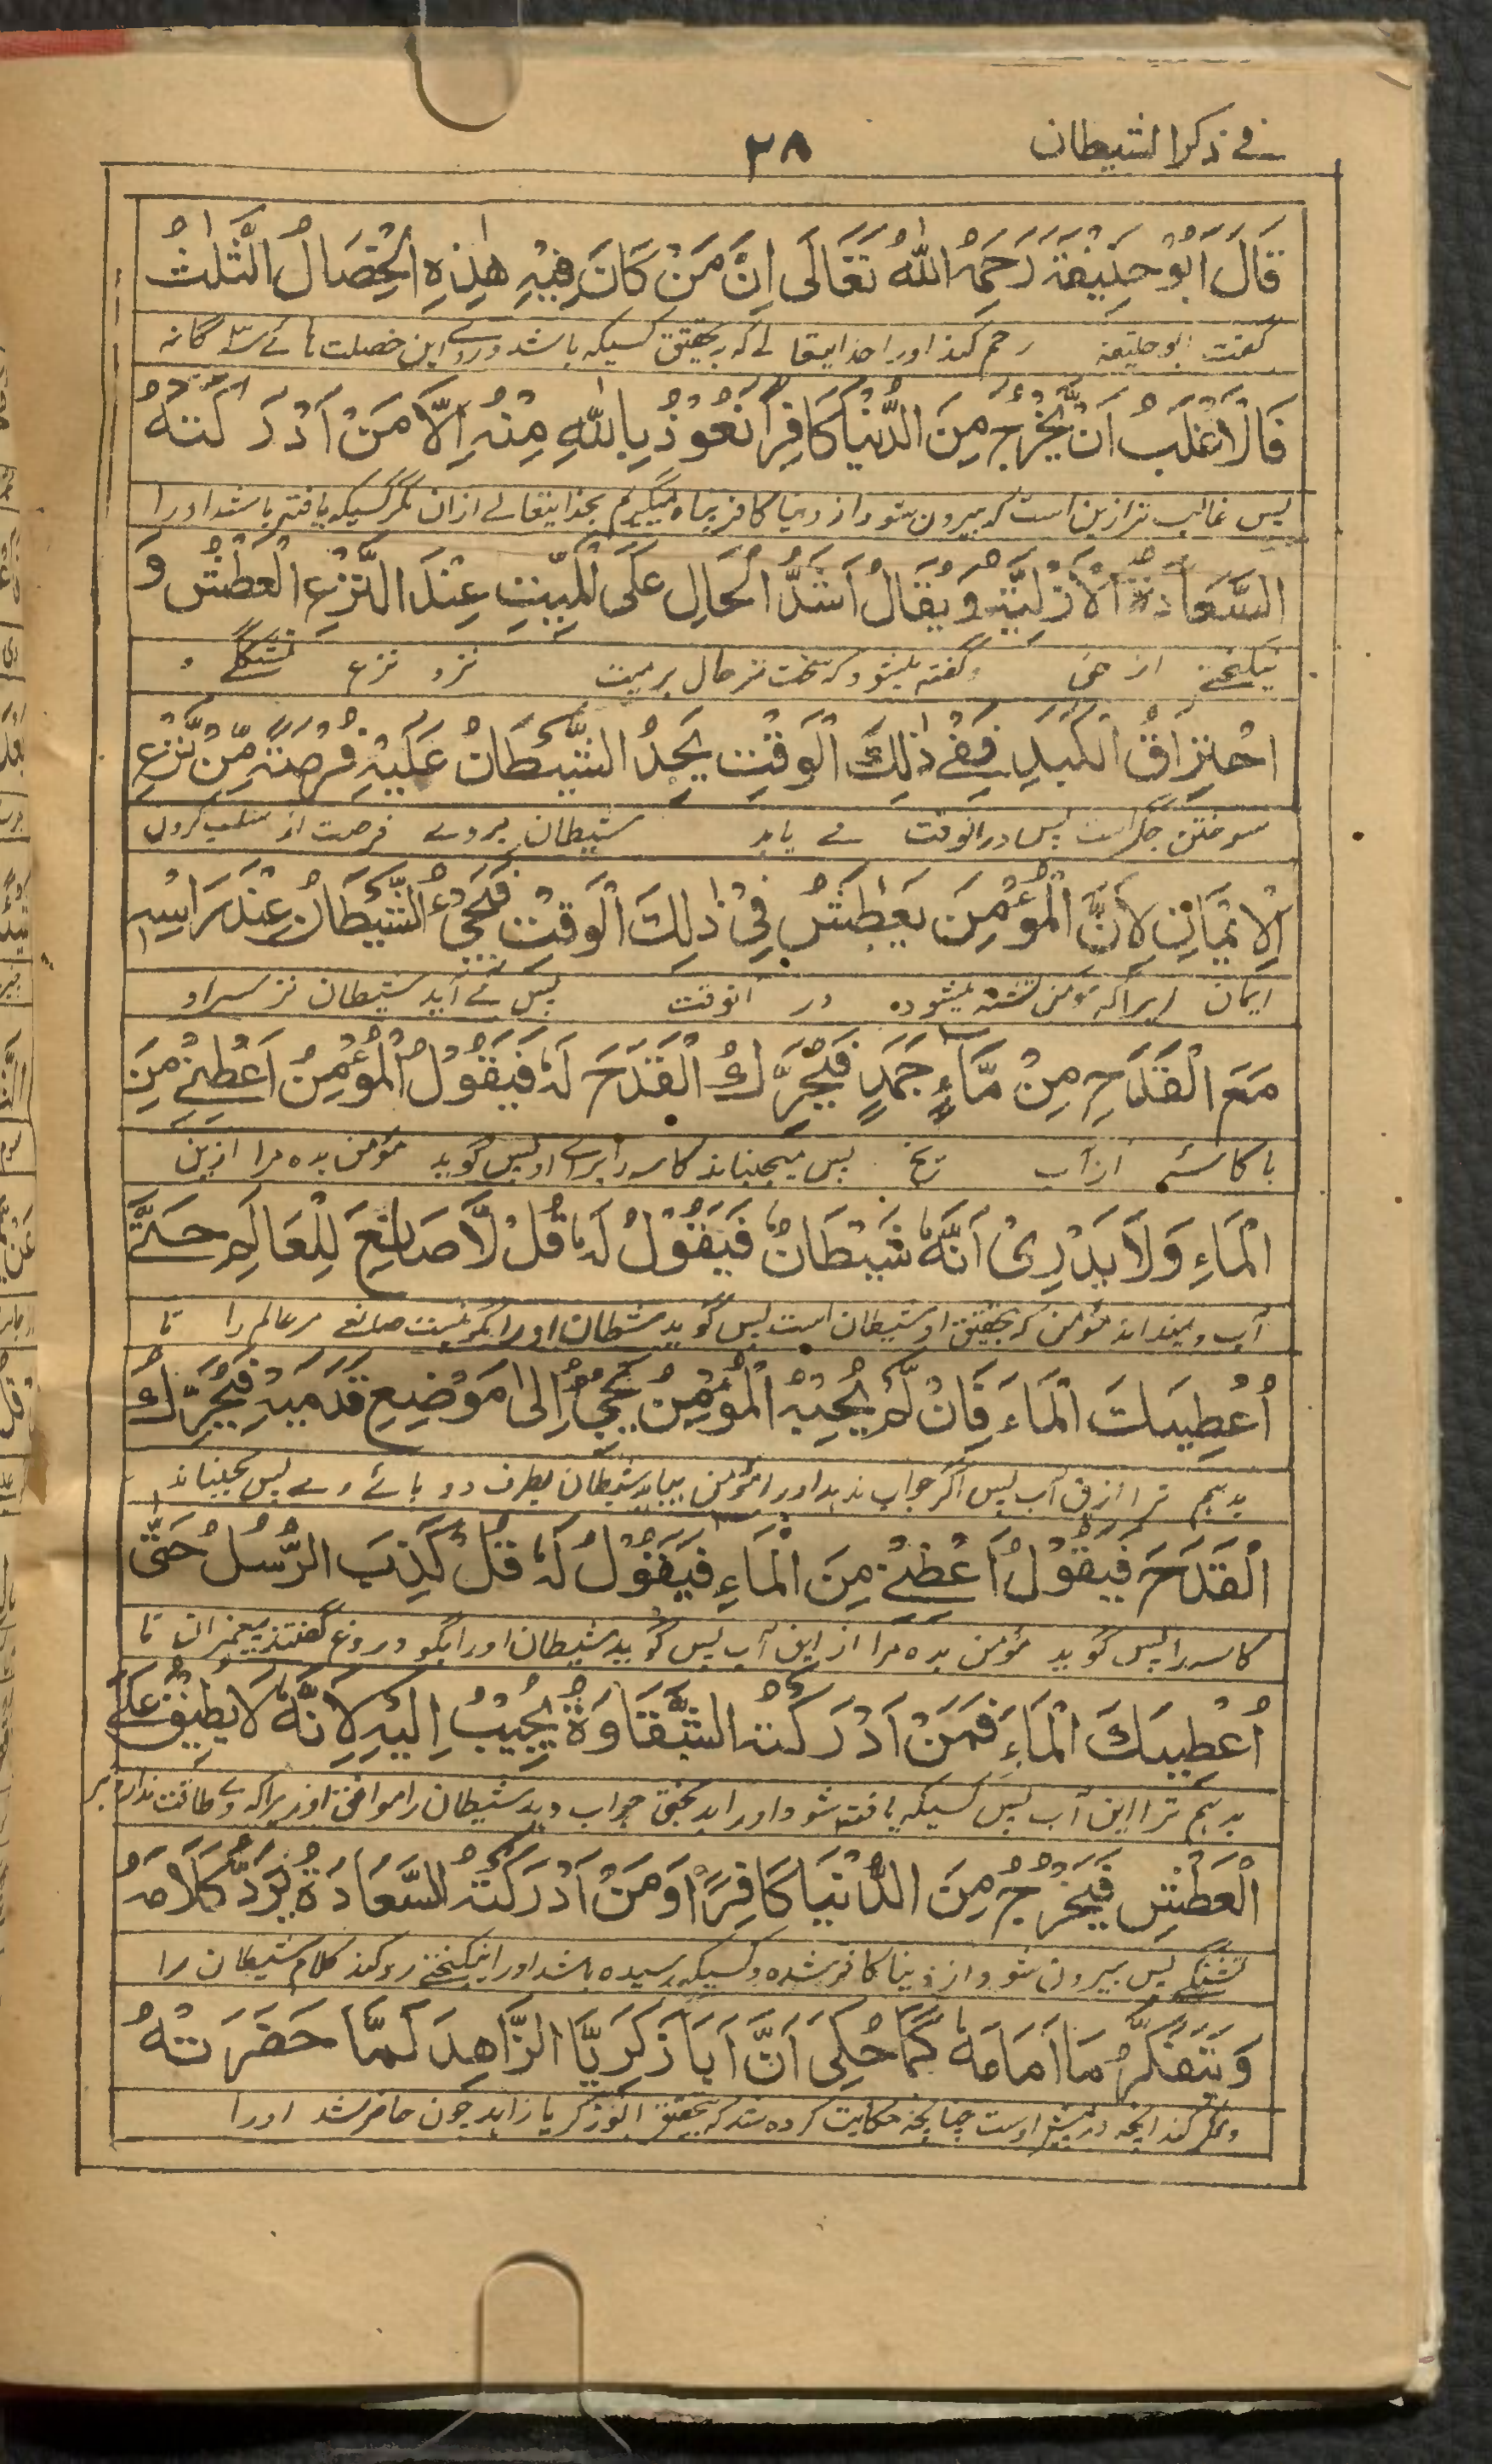 في ذكر الشيطان ٢٨
قَالَ اَبُوْ حَنِيْفَةَ رَحِمَهُ اللّٰهُ تَعَالٰى اِنَّ مَنْ كَانَ فِيْهِ هٰذِهِ الْخِصَالُ الثَّلٰثُ
گفت ابو حنیفه رحم کند اورا خدایتعالے که بتحقیق کسیکه باشد دروے این خصلت ہائے سہ گانہ
فَالْاَغْلَبُ اَنْ يَّخْرُجَ مِنَ الدُّنْيَا كَافِرًا نَعُوْذُ بِاللّٰهِ مِنْهُ اِلَّا مَنْ اَدْرَكَتْهُ
پس غالب ترازین است که بیرون شود از دنیا کافر پناه میگیرم بخدایتعالے ازان مگر کسیکه یافته باشد اورا
السَّعَادَةُ الْاَزَلِيَّةُ وَيُقَالُ اَشَدُّ الْحَالِ عَلَى الْمَيِّتِ عِنْدَ النَّزْعِ الْعَطَشُ وَ
نیکبختے از لی وگفته میشود که سخت تر حال بر میت نزد نزع تشنگے و
احْتِرَاقُ الْكَبِدِ فَفِي ذٰلِكَ الْوَقْتِ يَجِدُ الشَّيْطَانُ عَلَيْهِ فُرْصَةً مِّنْ نَّزْعِ
سوختن جگر است پس درانوقت مے یابد شیطان بروے فرصت از سلب کردن
الْاِيْمَانِ لِاَنَّ الْمُؤْمِنَ يَعْطَشُ فِيْ ذٰلِكَ الْوَقْتِ فَيَجِيْءُ الشَّيْطَانُ عِنْدَ رَاْسِهِ
ایمان زیراکه مومن تشنه میشوده در انوقت پس مے آید شیطان نزد سراو
مَعَ الْقَدَحِ مِنْ مَّآءٍ جَمَدٍ فَيُحَرِّكُ الْقَدَحَ لَهٗ فَيَقُوْلُ الْمُؤْمِنُ اَعْطِنِيْ مِنَ
با کاسئه از آب یخ پس میجنباند کاسه را براے او پس گوید مؤمن بده مرا ازین
الْمَاءِ وَلَا يَدْرِيْ اَنَّهٗ شَيْطَانٌ فَيَقُوْلُ لَهٗ قُلْ لَّا صَانِعَ لِلْعَالَمِ حَتّٰى
آب ونمیداند مؤمن که بتحقیق او شیطان است پس گوید شیطان اورا بگو نیست صانعے مر عالم را تا
اُعْطِيَكَ الْمَاءَ فَاِنْ لَّمْ يُجِبْهُ الْمُؤْمِنُ يَجِيْءُ اِلٰى مَوْضِعِ قَدَمَيْهِ فَيُحَرِّكُ
بدہم ترا ازین آب پس اگر جواب ندہد اورا مؤمن بیاید شیطان بطرف دو پائے وے پس بجنباند
الْقَدَحَ فَيَقُوْلُ اَعْطِنِيْ مِنَ الْمَاءِ فَيَقُوْلُ لَهٗ قُلْ كَذَبَ الرُّسُلُ حَتّٰى
کاسه را پس گوید مؤمن بده مرا از این آب پس گوید شیطان اورا بگو دروغ گفتند پیغمبران تا
اُعْطِيَكَ الْمَاءَ فَمَنْ اَدْرَكَتْهُ الشَّقَاوَةُ يُجِيْبُ اِلَيْهِ لِاَنَّهٗ لَا يُطِيْقُ عَلَى
بدہم ترا این آب پس کسیکه یافته شود اورا بدبختی جواب دہد شیطان را موافق او زیراکه وے طاقت ندارد بر
الْعَطَشِ فَيَخْرُجُ مِنَ الدُّنْيَا كَافِرًا وَمَنْ اَدْرَكَتْهُ السَّعَادَةُ يَرُدُّ كَلَامَهُ
تشنگے پس بیرون شود از دنیا کافر شده وکسیکه رسیده باشد اورا نیکبختے رد کند کلام شیطان را
وَيَتَفَكَّرُ مَا اَمَامَهٗ كَمَا حُكِيَ اَنَّ اَبَا زَكَرِيَّا الزَّاهِدَ لَمَّا حَضَرَتْهُ
وفکر کند آنچه درپیش اوست چنانچه حکایت کرده شد که بتحقیق ابوزکریا زاہد چون حاضر شد اورا